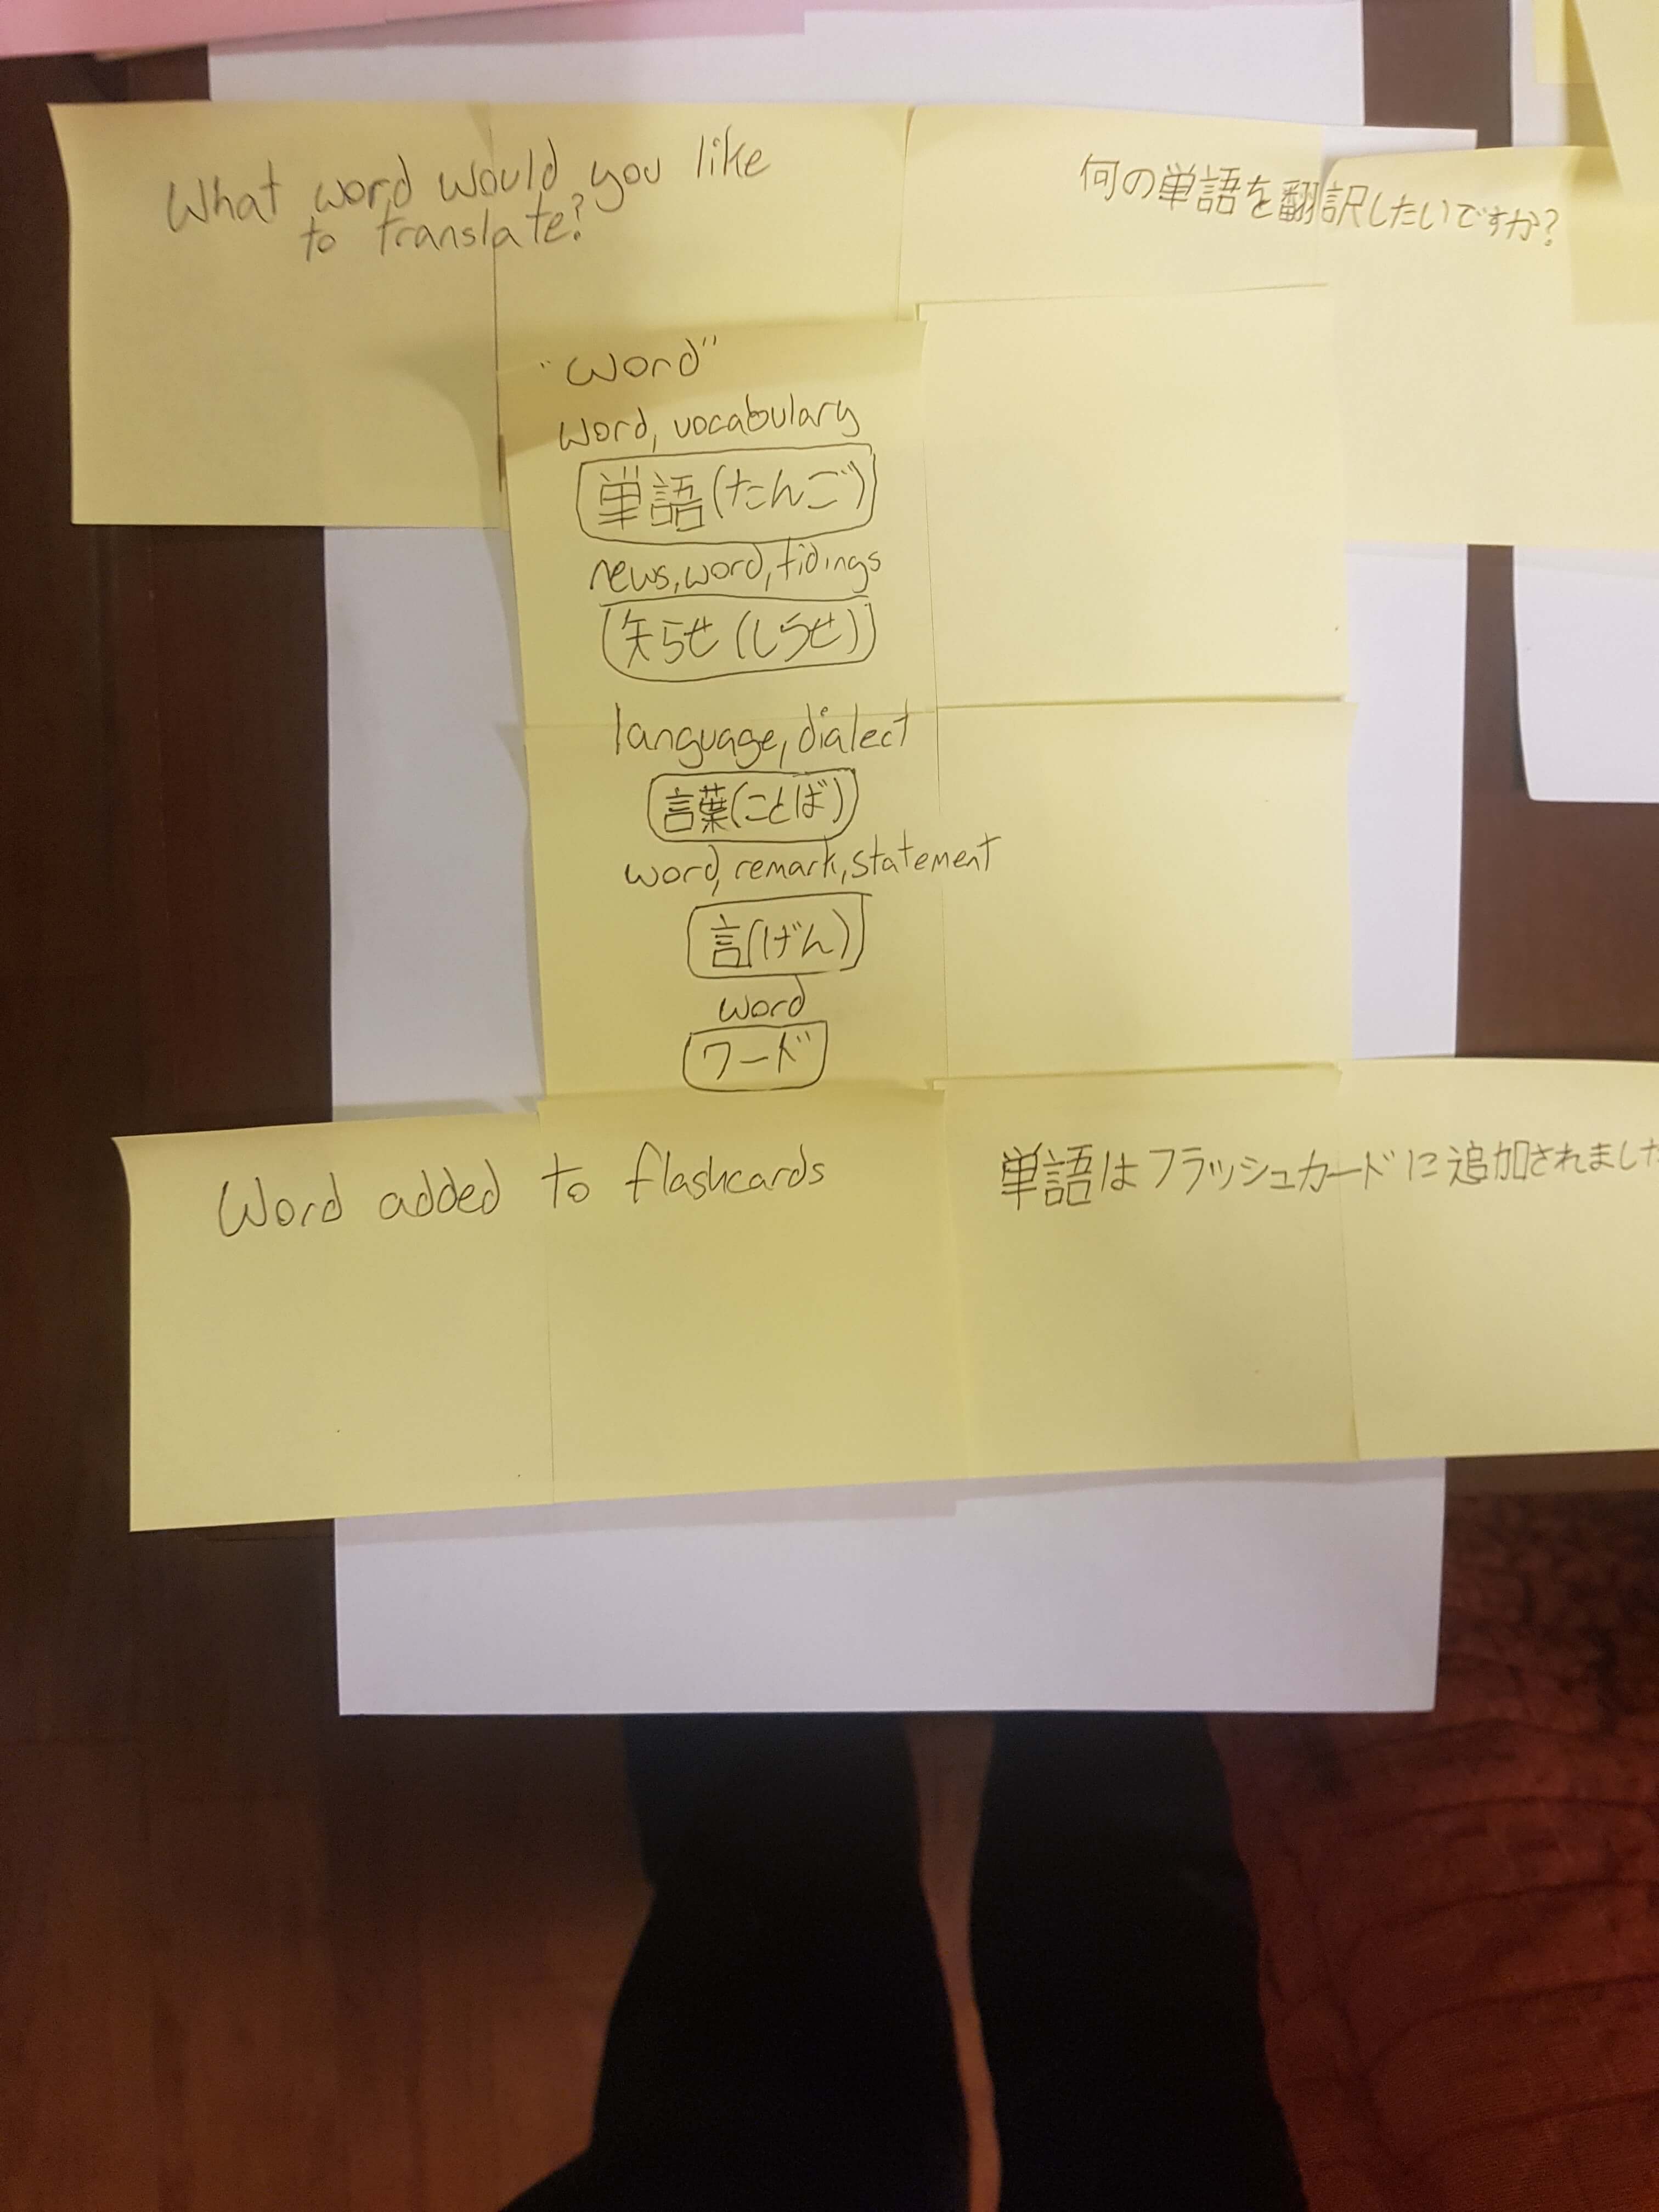 What word would you like
to translate?
何の単語を翻訳したいですか?
"word"
word, vocabulary
単語(たんご)
news, word, tidings
知らせ(しらせ)
language, dialect
言葉(ことば)
word, remark, statement
言(げん)
word
ワード
Word added to flashcards
単語はフラッシュカードに追加されました